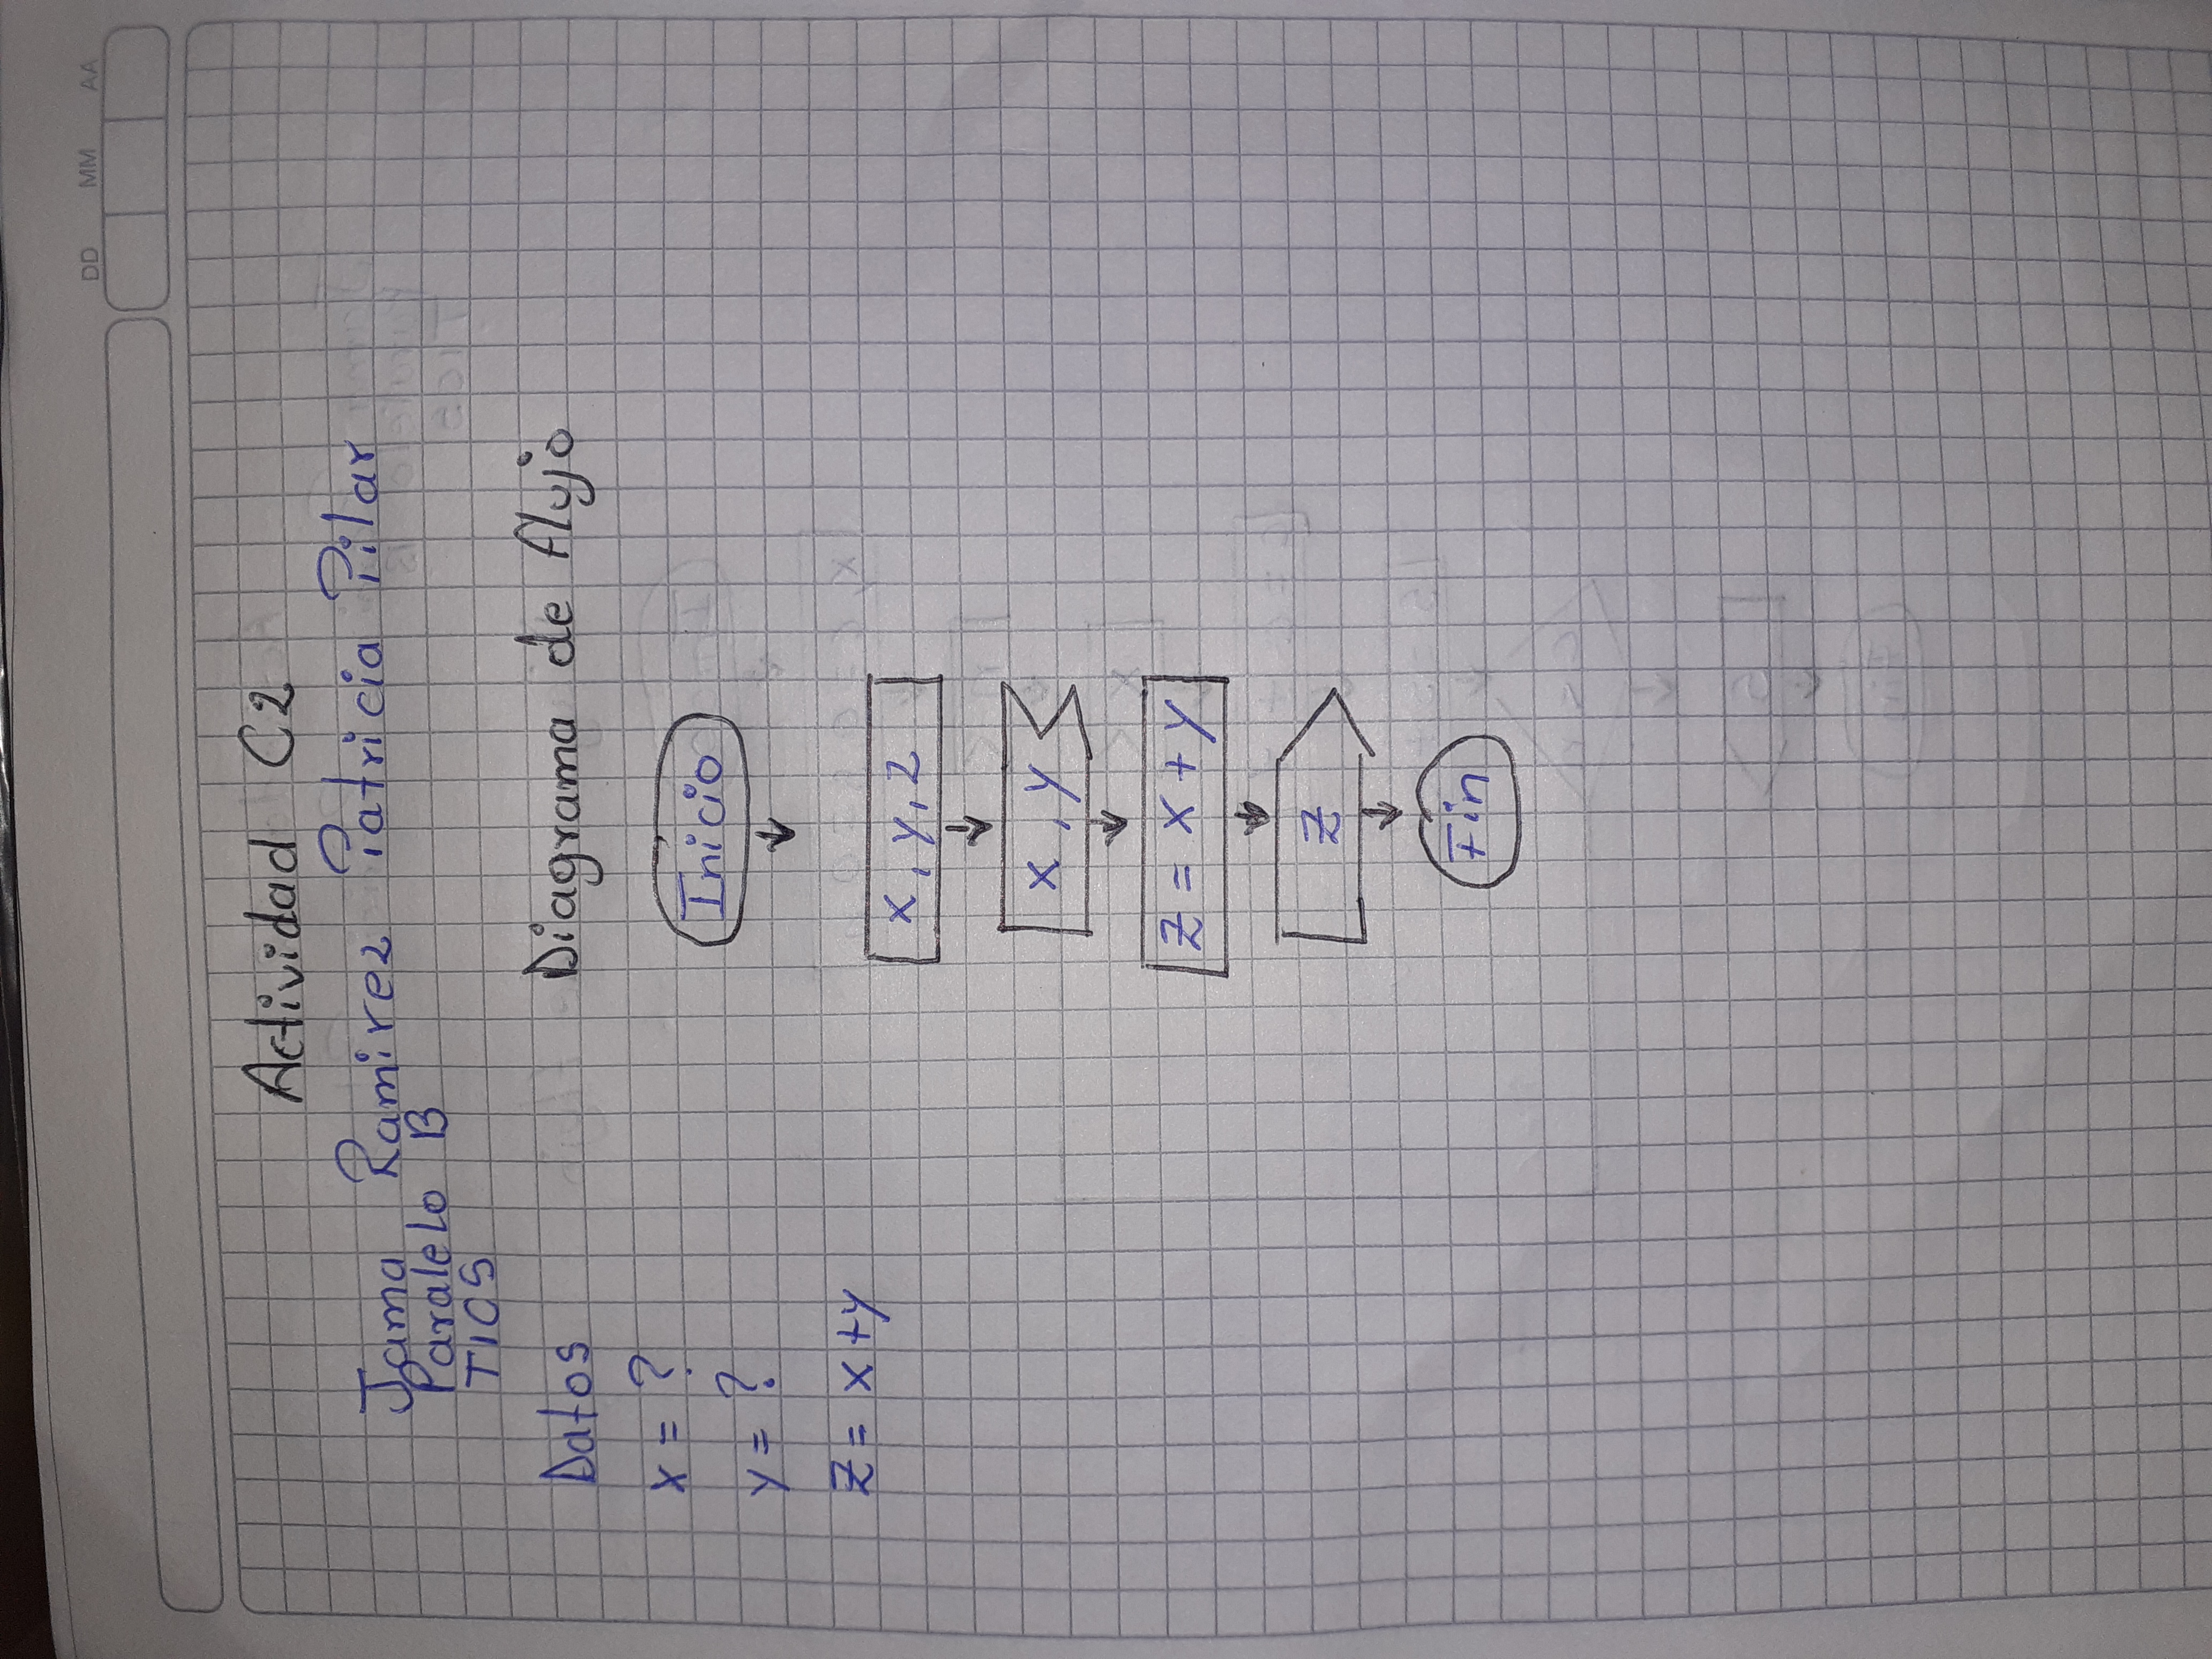 DD MM AA
Actividad C2
Jama Ramirez Patricia Pilar
Paralelo B
TICS
Datos
Diagrama de flujo
x = ?
y = ?
z = x + y
Inicio
x, y, z
x, y
z = x + y
z
Fin